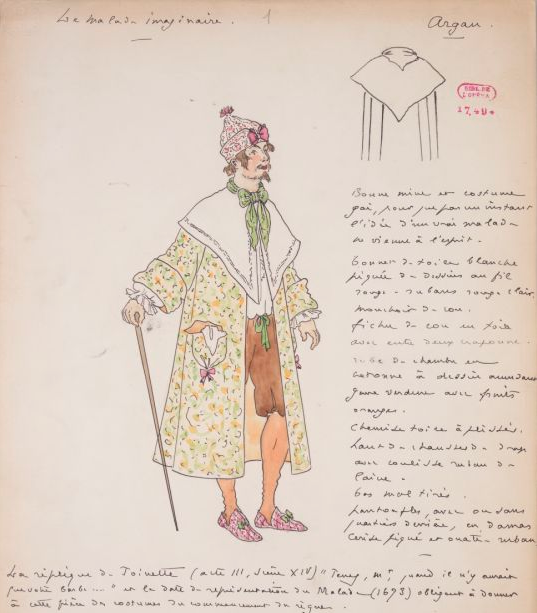 Le malade imaginaire. 1
Argan.
BIBL. DE
L'OPÉRA
Bonne mine et costume
gai, pour que pas un instant
l'idée d'un vrai malade
ne vienne à l'esprit.
bonnet de toile blanche
piquée de dessins au fil
rouge - rubans rouge clair.
mouchoir de cou.
fichu de cou en toile
avec entre deux
robe de chambre en
cotonne à dessin
verdure avec fruits
oranges.
chemise toile à plissés.
haut de chausses de drap
avec coulisse ruban de
laine.
bas mal tirés.
pantoufles, avec ou sans
quartiers derrière, en damas
cerise piqué et ouaté - ruban
La réplique de Toinette (acte III, scène XIV) "Tenez, mr, quand il n'y aurait
que votre barbe..." et la date de représentation du Malade (1673) obligent à donner
à cette pièce des costumes du commencement du règne.